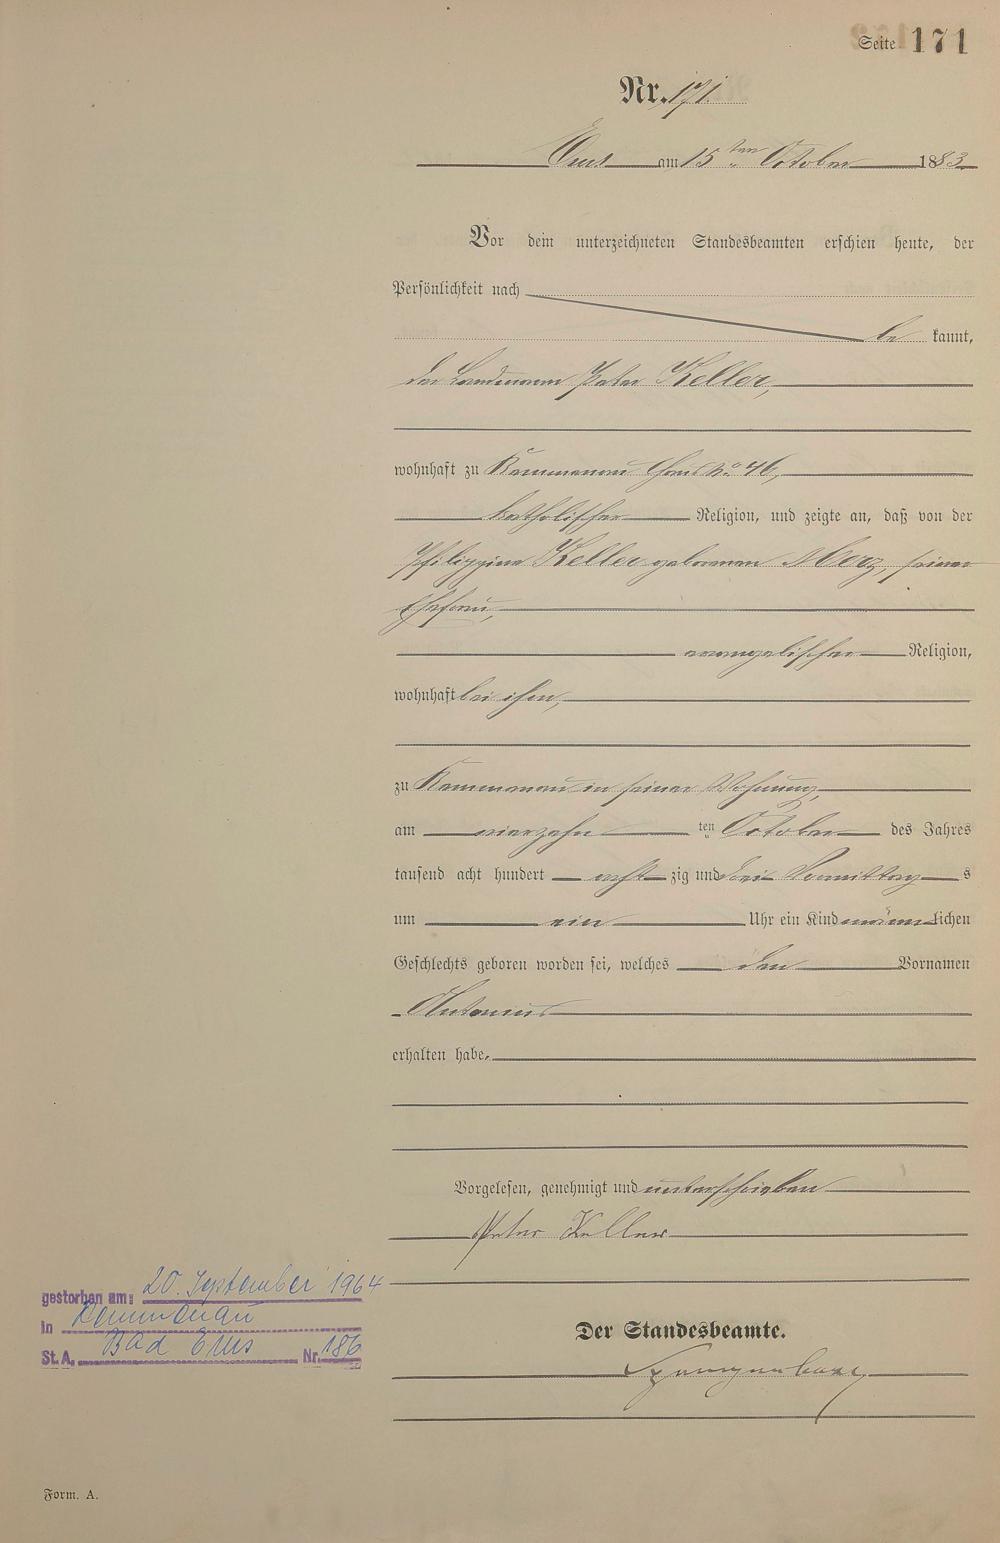 Seite 171
Nr. 171.
Ems am 15ten October 1883
Vor dem unterzeichneten Standesbeamten erschien heute, der
Persönlichkeit nach
be kannt,
der Landmann Peter Keller,
wohnhaft zu Kemmenau Haus No 46,
katholischer Religion, und zeigte an, daß von der
Philippine Keller geborenen Merz, seiner
Ehefrau,
evangelischer Religion,
wohnhaft bei ihm,
zu Kemmenau in seiner Wohnung,
am vierzehn ten October des Jahres
tausend acht hundert acht zig und drei Vormittag s
um ein Uhr ein Kind männ lichen
Geschlechts geboren worden sei, welches den Vornamen
Antonius
erhalten habe.
Vorgelesen, genehmigt und unterschrieben
Peter Keller
Der Standesbeamte.
gestorben am: 20. September 1964
in Kemmenau
St. A. Bad Ems Nr. 186
Form. A.